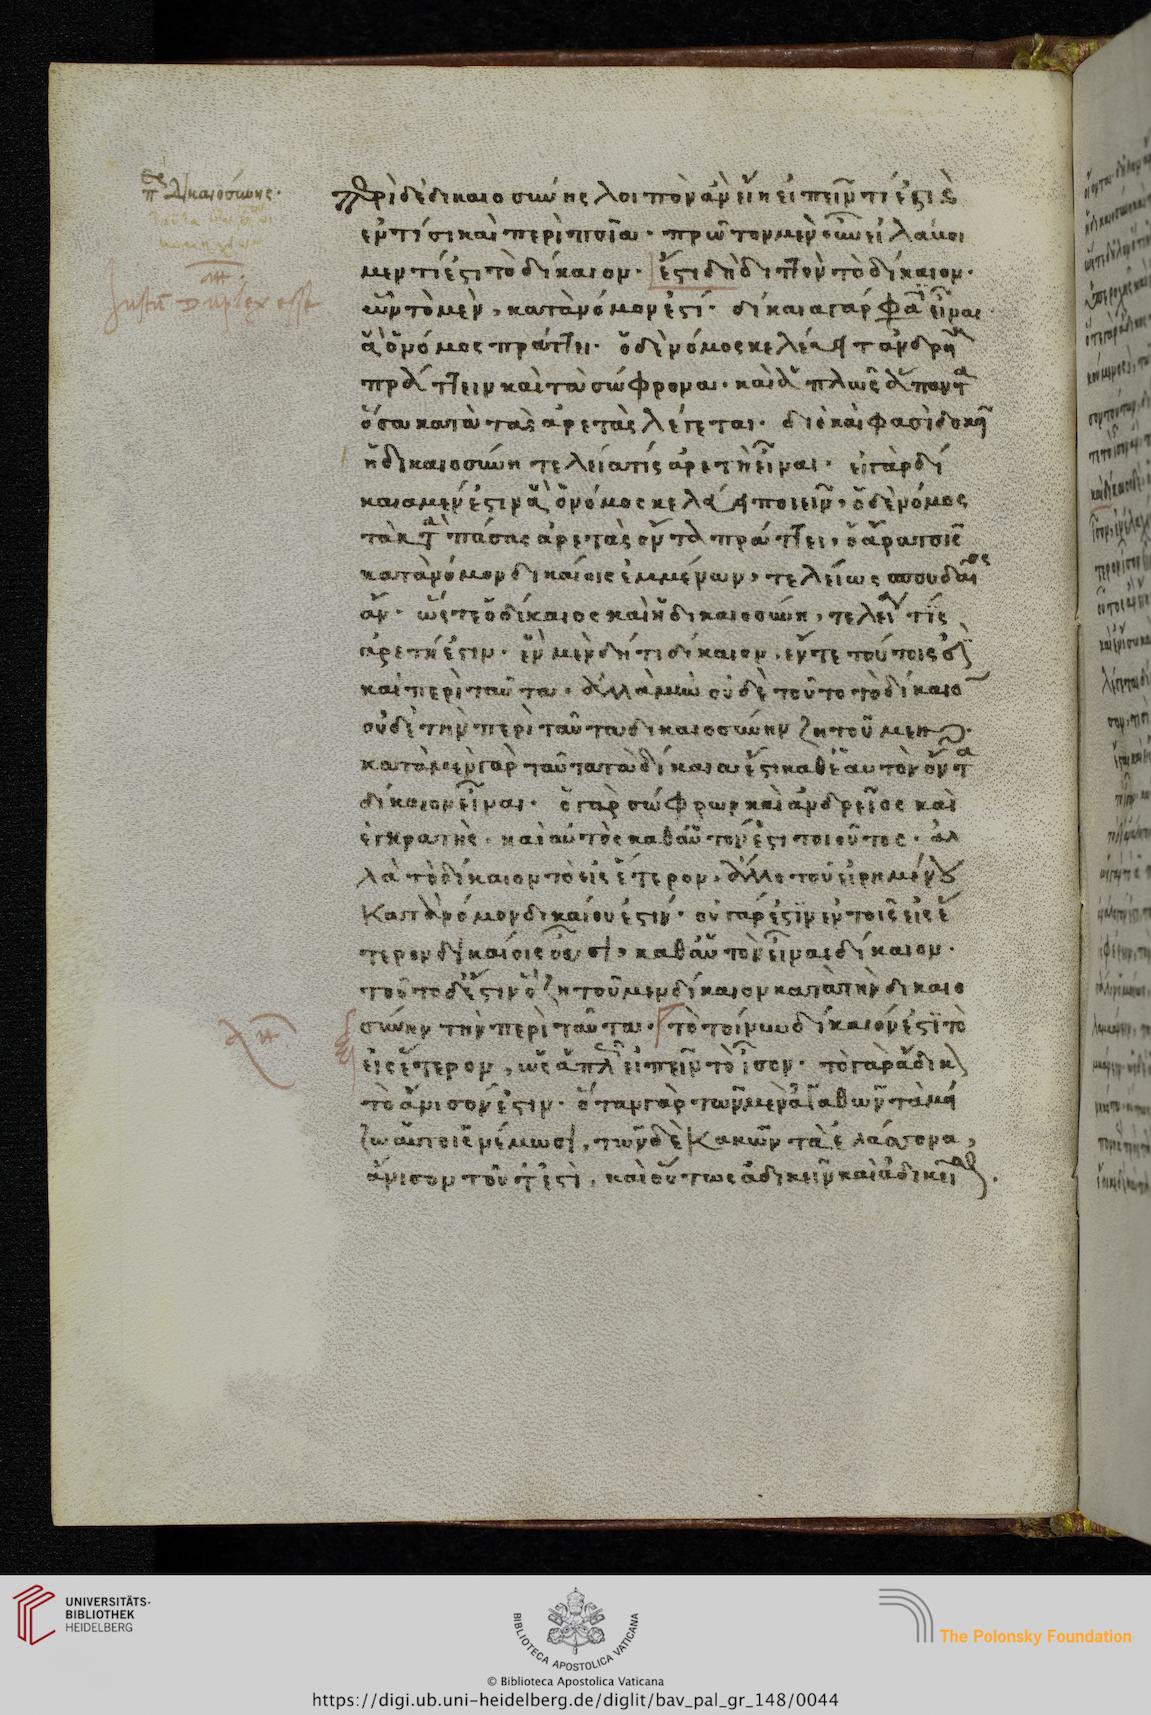 π δικαιοσύνης·
Justū Duplex esse
Περὶ δὲ δικαιοσύνης λοιπὸν ἂν εἴη εἰπεῖν τί ἐστι κ
ἐν τίσι καὶ περὶ ποῖα· πρῶτον μὲν οὖν εἰ λάβοι
μεν τί ἐστι τὸ δίκαιον· ἔστι δὴ διττὸν τὸ δίκαιον·
ὧν τὸ μὲν, κατὰ νόμον ἐστί· δίκαια γάρ φα εἶναι
ἃ ὁ νόμος πράττει· ὁ δὲ νόμος κελεύει τἀνδρεῖα
πράττειν καὶ τὰ σώφρονα· καὶ ἁπλῶς ἅπαντα
ὅσα κατὰ τὰς ἀρετὰς λέγεται· διὸ καὶ φασὶ δοκεῖ
ἡ δικαιοσύνη τελεία τίς ἀρετὴ εἶναι· εἰ γὰρ δί
καια μέν ἐστιν ἃ ὁ νόμος κελεύει ποιεῖν, ὁ δὲ νόμος
τὰ κατὰ πάσας ἀρετὰς ὄντα πράττει, ὁ ἄρα τοῖς
κατὰ νόμον δικαίοις ἐμμένων, τελείως σπουδαῖος
ἂν· ὥστε ὁ δίκαιος καὶ ἡ δικαιοσύνη, τελεία τίς
ἀρετή ἐστιν· ἓν μὲν δή τι δίκαιον, ἔν τε τούτοις ἐστὶ
καὶ περὶ ταῦτα· ἀλλὰ μὴν οὐδὲ τοῦτο τὸ δίκαιον
οὐδὲ τὴν περὶ ταῦτα δικαιοσύνην ζητοῦμεν·
κατὰ μὲν γὰρ ταῦτα τὰ δίκαια ἔστι καθ' ἑαυτὸν ὄντα
δίκαιον εἶναι· ὁ γὰρ σώφρων καὶ ἀνδρεῖος καὶ
ἐγκρατὴς, καὶ αὐτὸς καθ' αὑτόν ἐστι τοιοῦτος· ἀλ
λὰ τὸ δίκαιον τὸ εἰς ἕτερον, ἄλλο τοῦ εἰρημένου
κατὰ νόμον δικαίου ἐστίν· οὐ γάρ ἐστιν ἐν τοῖς εἰς ἕ
τερον δικαίοις οὖσι, καθ' αὑτὸν εἶναι δίκαιον·
τοῦτο δ' ἔστιν ὃ ζητοῦμεν δίκαιον κατὰ τὴν δικαιο
σύνην τὴν περὶ ταῦτα· τὸ τοίνυν δίκαιόν ἐστι τὸ
εἰς ἕτερον, ὡς ἁπλῶς εἰπεῖν τὸ ἴσον· τὸ γὰρ ἄδικον
τὸ ἄνισόν ἐστιν· ὅταν γὰρ τῶν μὲν ἀγαθῶν τὰ μεί
ζω αὑτοῖς νέμωσι, τῶν δὲ κακῶν τὰ ἐλάττονα,
ἄνισον τοῦτό ἐστὶ, καὶ οὕτως ἀδικεῖν καὶ ἀδικεῖσθαι·
UNIVERSITÄTS-
BIBLIOTHEK
HEIDELBERG
BIBLIOTECA APOSTOLICA VATICANA
The Polonsky Foundation
© Biblioteca Apostolica Vaticana
https://digi.ub.uni-heidelberg.de/diglit/bav_pal_gr_148/0044